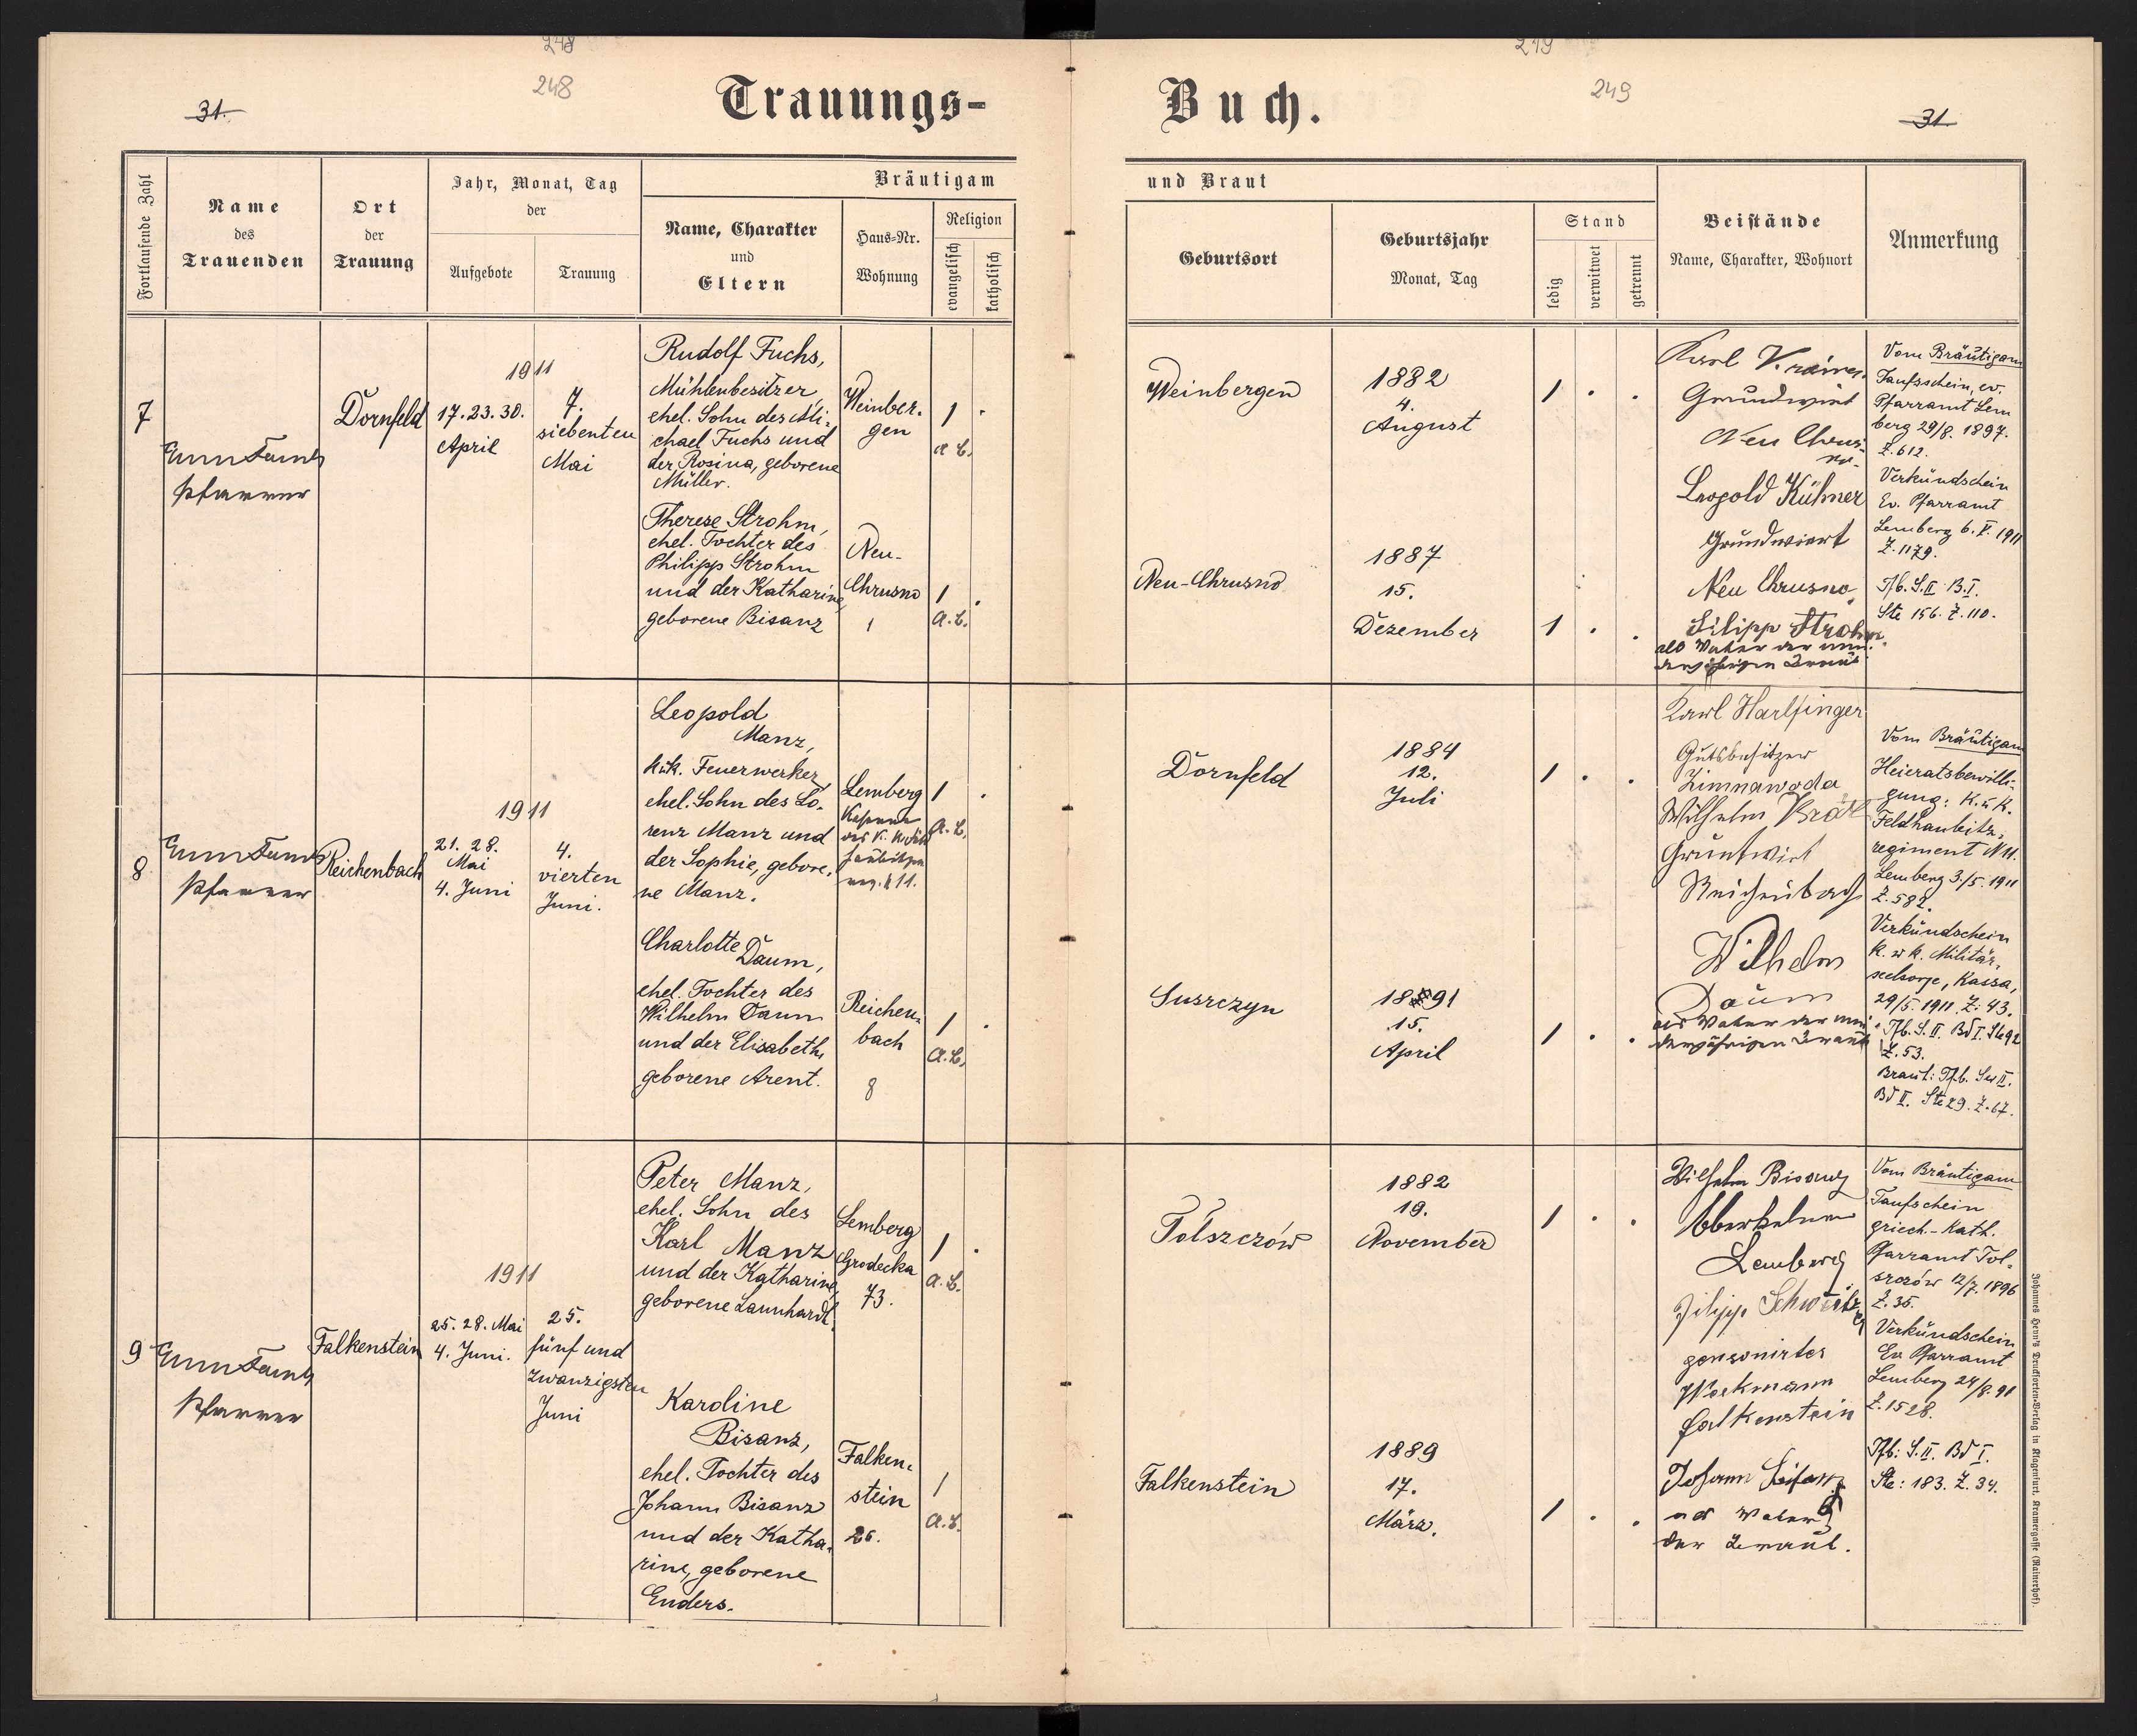 248
249
248
249
31.
31
Trauungs-
Buch.
Fortlaufende Zahl
Name
des
Trauenden
Ort
der
Trauung
Jahr, Monat, Tag
der
Aufgebote
Trauung
Bräutigam
Name, Charakter
und
Eltern
Haus-Nr.
Wohnung
Religion
evangelisch
katholisch
und Braut
Geburtsort
Geburtsjahr
Monat, Tag
Stand
ledig
verwitwet
getrennt
Beistände
Name, Charakter, Wohnort
Anmerkung
7
Pfarrer
Dornfeld
1911
17. 23. 30.
April
7.
siebenten
Mai
Rudolf Fuchs,
Mühlenbesitzer,
ehel. Sohn des Mi-
chael Fuchs und
der Rosina, geborene
Müller.
Weinber-
gen
1 .
A. C.
Therese Strohm,
ehel. Tochter des
Philipp Strohm
und der Katharine,
geborene Bisanz
Neu-
Chrusno
1
1 .
A. C.
Weinbergen
1882
4.
August
1 . .
Neu-Chrusno
1887
15.
Dezember
1 . .
Karl
Grundwirt
Neu Chrus-
no.
Leopold Kühner
Grundwiert
Neu Chrusno,
Filipp Strohm
als Vater der min-
derjährigen Braut.
Vom Bräutigam
Taufschein, ev.
Pfarramt Lem
berg 29/8. 1897.
Z. 612.
Verkündschein
Ev. Pfarramt
Lemberg 6. V. 1911
Z. 1179.
Tfb. S. II B. I.
Ste 156. Z. 110.
8
Pfarrer
Reichenbach
1911
21. 28.
Mai
4. Juni
4.
vierten
Juni.
Leopold
Manz,
k.u.k. Feuerwerker,
ehel. Sohn des Lo-
renz Manz und
der Sophie, gebore-
ne Manz.
Lemberg
1 .
A. C.
Charlotte
Daum,
ehel. Tochter des
Wilhelm Daum
und der Elisabeth,
geborene Arent.
Reichen-
bach
8
1 .
A. C.
Dornfeld
1884
12.
Juli
1 . .
Suszczyn
1891
15.
April
1 . .
Karl Harlfinger
Gutsbesitzer
Zimnawoda
Wilhelm
Gruntwirt
Reichenbach
Wilhelm
Daum
als Vater der min-
derjährigen Braut
Vom Bräutigam
Heieratsbewilli-
gung: K. u K.
Feldhaubitz-
regiment N 11.
Lemberg 3./5. 1911
Z. 582.
Verkündschein
K. u k. Militär-
seelsorge, Kassa,
29/5. 1911. Z. 43.
Tfb. S. II. Bd I. Ste 92
Z. 53.
Braut: Tfb. Ser II.
Bd II. Ste 29. Z. 67.
9
Pfarrer
Falkenstein
1911
25. 28. Mai
4. Juni.
25.
fünf und
zwanzigsten
Juni
Peter Manz,
ehel. Sohn des
Karl Manz
und der Katharine,
geborene Launhardt.
Lemberg
Grodecka
73.
1 .
A. C.
Karoline
Bisanz,
ehel. Tochter des
Johann Bisanz
und der Katha-
rine, geborene
Enders.
Falken-
stein
26.
1
A. C.
Tolszczów
1882
19.
November
1 . .
Falkenstein
1889
17.
März.
1 . .
Wilhelm Bisanz
Oberkelner
Lemberg
Filipp
pensonirter
Werkmann
Falkenstein
Johann
als Vater
der Braut.
Vom Bräutigam
Taufschein
griech.-kath.
Pfarramt Tol-
szczów 12/7. 1896
Z. 35.
Verkündschein
Ev Pfarramt
Lemberg 24/8. 91
Z. 1528.
Tfb: S. II. Bd I.
Ste: 183. Z. 34.
Johannes Heyn's Drucksorten-Verlag in Klagenfurt, Kramergasse (Rainerhof).